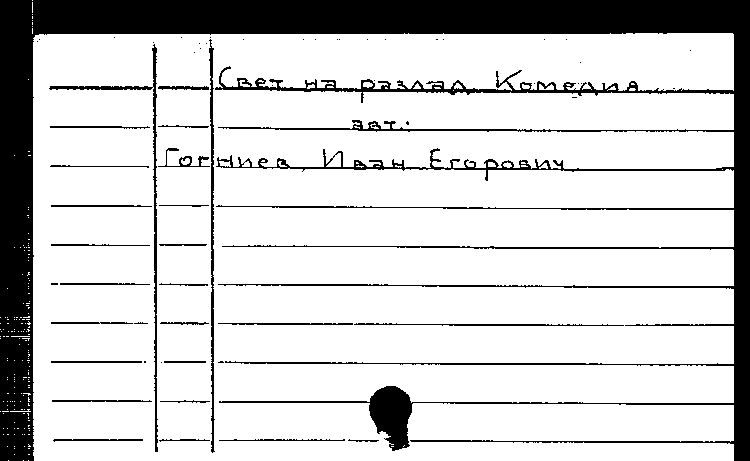 Свет на разлад Комедия
авт.:
Гогниев, Иван Егорович